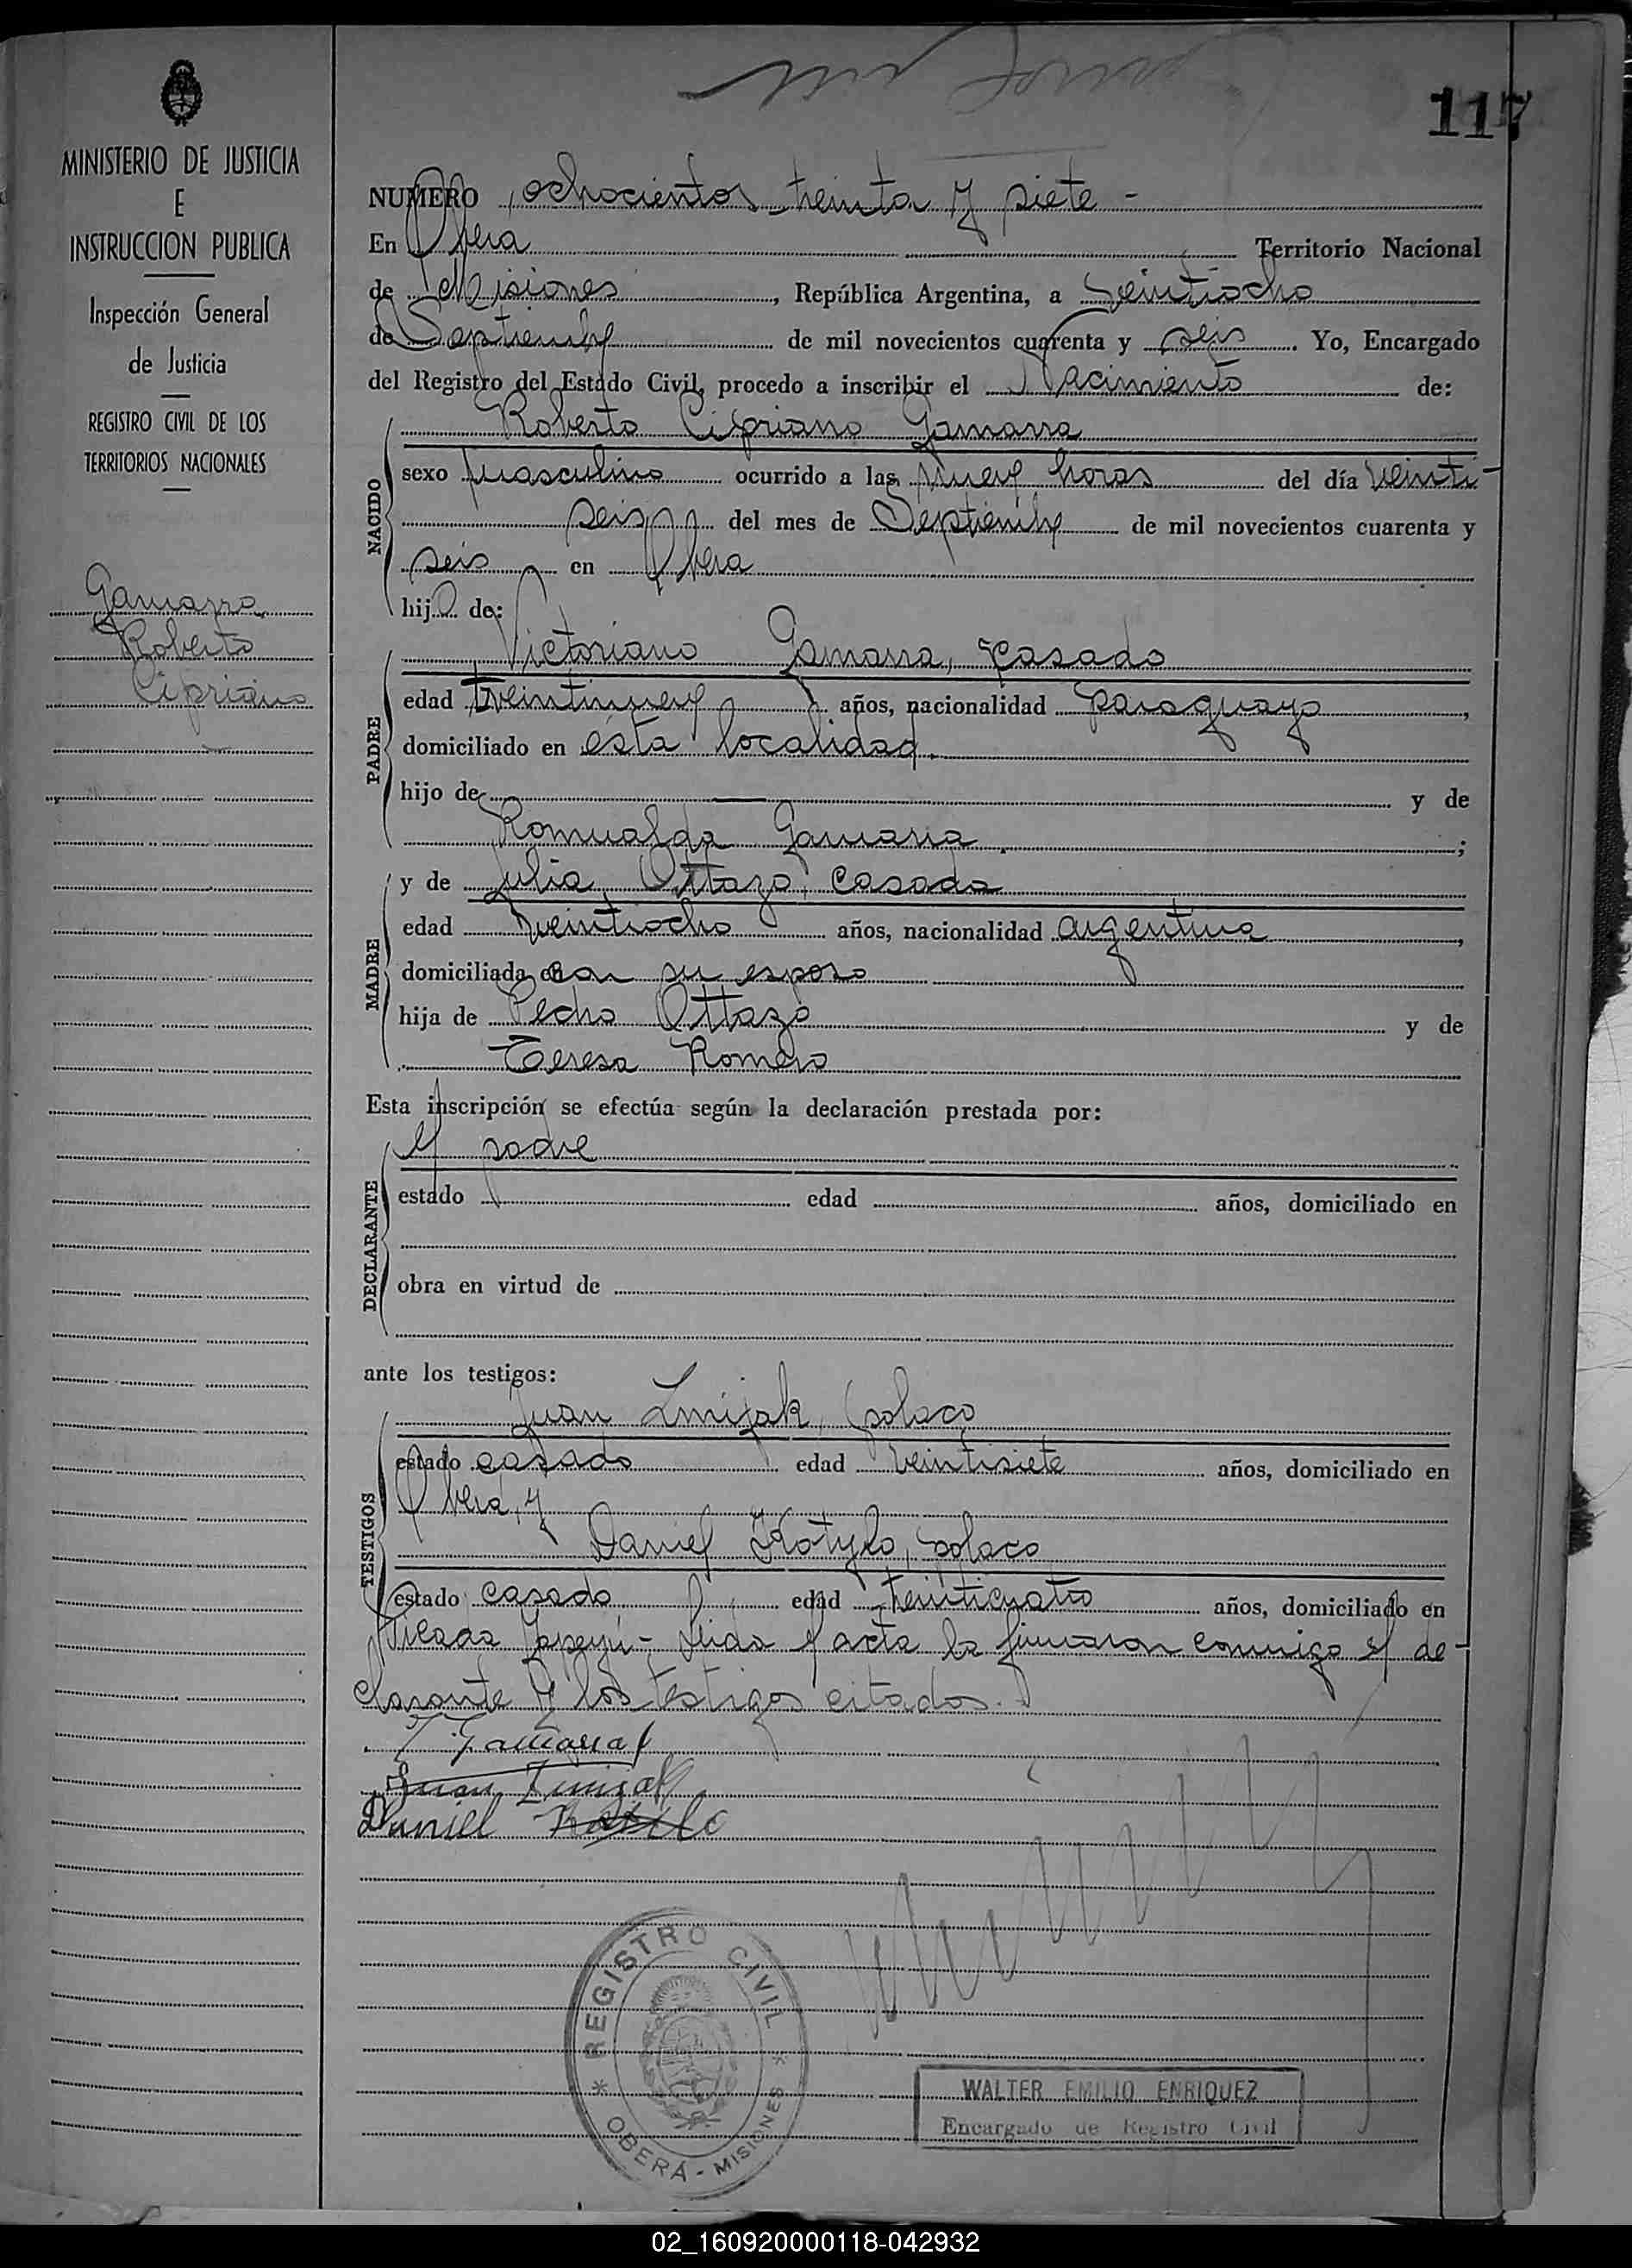 117
MINISTERIO DE JUSTICIA
E
INSTRUCCION PUBLICA
Inspección General
de Justicia
REGISTRO CIVIL DE LOS
TERRITORIOS NACIONALES
Gamarra
Roberto
Cipriano
NUMERO ochocientos treinta y siete -
En Obera Territorio Nacional
de Misiones, República Argentina, a veintiocho
de Septiembre de mil novecientos cuarenta y seis. Yo, Encargado
del Registro del Estado Civil, procedo a inscribir el Nacimiento de:
Roberto Cipriano Gamarra
NACIDO
sexo masculino ocurrido a las nueve horas del día veinti-
seis del mes de Septiembre de mil novecientos cuarenta y
seis en Obera
hijo de:
Victoriano Gamarra, casado
PADRE
edad treintinueve años, nacionalidad paraguayo,
domiciliado en esta localidad.
hijo de — y de
Romualda Gamarra.;
y de Julia Ottazo, casada
MADRE
edad veintiocho años, nacionalidad argentina,
domiciliada con su esposo
hija de Pedro Ottazo y de
Teresa Romero
Esta inscripción se efectúa según la declaración prestada por:
el padre
DECLARANTE
estado edad años, domiciliado en
obra en virtud de
ante los testigos:
Juan Zmijak, polaco
TESTIGOS
estado casado edad veintisiete años, domiciliado en
Obera, y
Daniel Kotylo, polaco
estado casado edad treinticuatro años, domiciliado en
Picada Yapeyú- Leida el acta la firmaron conmigo el de-
clarante y los testigos citados.
Gamarra
Juan Zmijak
Daniel
REGISTRO CIVIL
* OBERÁ - MISIONES *
WALTER EMILIO ENRIQUEZ
Encargado de Registro Civil
02_160920000118-042932